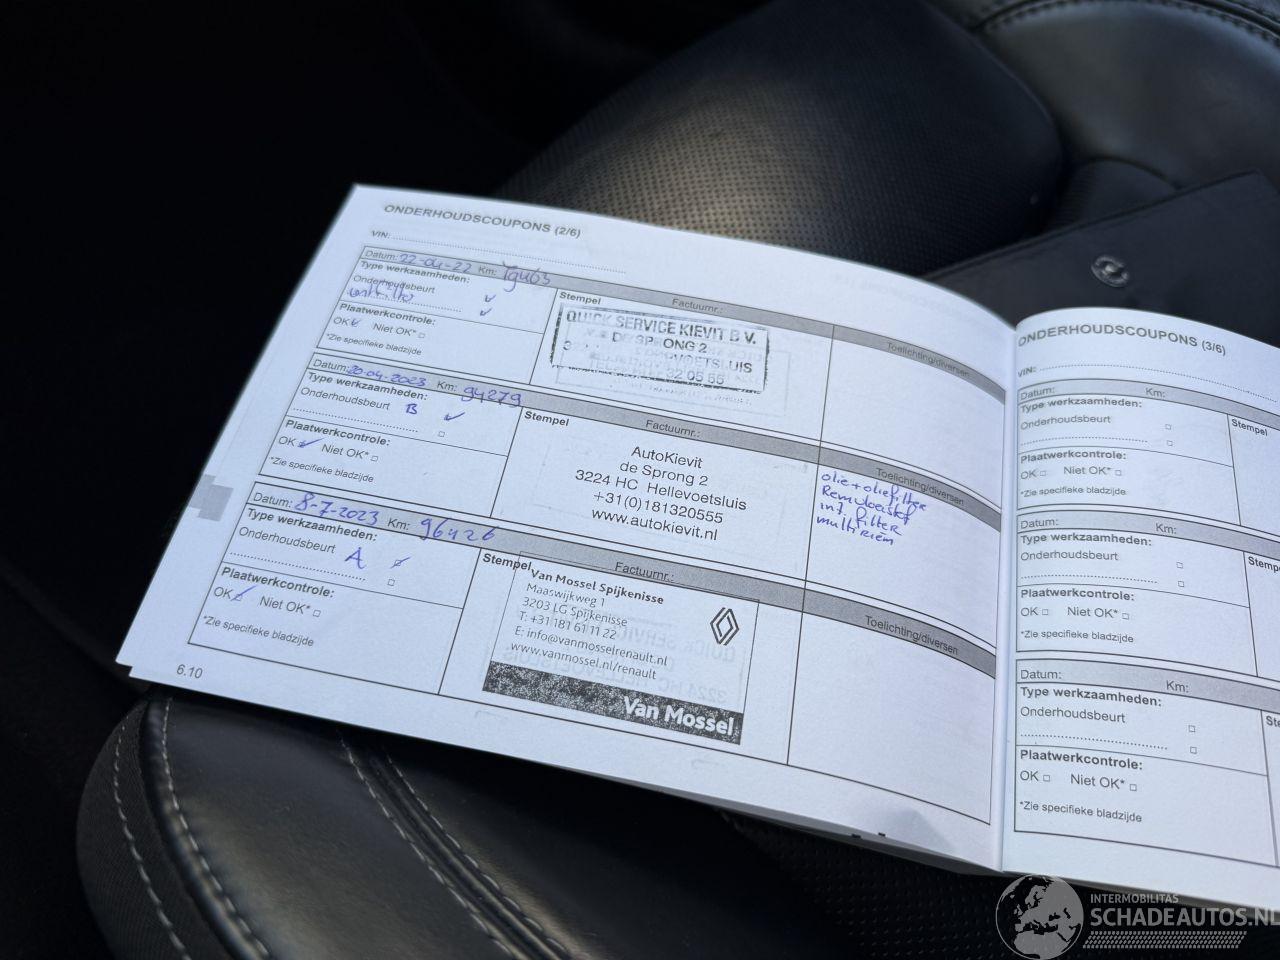 ONDERHOUDSCOUPONS (2/6)
VIN:
Datum: 22-04-22 Km:
Type werkzaamheden:
Onderhoudsbeurt
Plaatwerkcontrole:
OK Niet OK*
*Zie specifieke bladzijde
Stempel Factuurnr.:
QUICK SERVICE KIEVIT B.V.
DE SPRONG 2
Toelichting/diversen
Datum: 20-04-2023 Km: 94279
Type werkzaamheden:
Onderhoudsbeurt B
Plaatwerkcontrole:
OK Niet OK*
*Zie specifieke bladzijde
Stempel Factuurnr.:
AutoKievit
de Sprong 2
3224 HC Hellevoetsluis
+31(0)181320555
www.autokievit.nl
Toelichting/diversen
olie+oliefilter
Remvloeistof
int. filter
multiriem
Datum: 8-7-2023 Km: 96426
Type werkzaamheden:
Onderhoudsbeurt A
Plaatwerkcontrole:
OK Niet OK*
*Zie specifieke bladzijde
Stempel Factuurnr.:
Van Mossel Spijkenisse
Maaswijkweg 1
3203 LG Spijkenisse
T: +31 181 61 11 22
E: info@vanmosselrenault.nl
www.vanmossel.nl/renault
Van Mossel
Toelichting/diversen
6.10
ONDERHOUDSCOUPONS (3/6)
VIN:
Datum: Km:
Type werkzaamheden:
Onderhoudsbeurt
Plaatwerkcontrole:
OK Niet OK*
*Zie specifieke bladzijde
Stempel
Datum: Km:
Type werkzaamheden:
Onderhoudsbeurt
Plaatwerkcontrole:
OK Niet OK*
*Zie specifieke bladzijde
Stempel
Datum: Km:
Type werkzaamheden:
Onderhoudsbeurt
Plaatwerkcontrole:
OK Niet OK*
*Zie specifieke bladzijde
INTERMOBILITAS
SCHADEAUTOS.NL